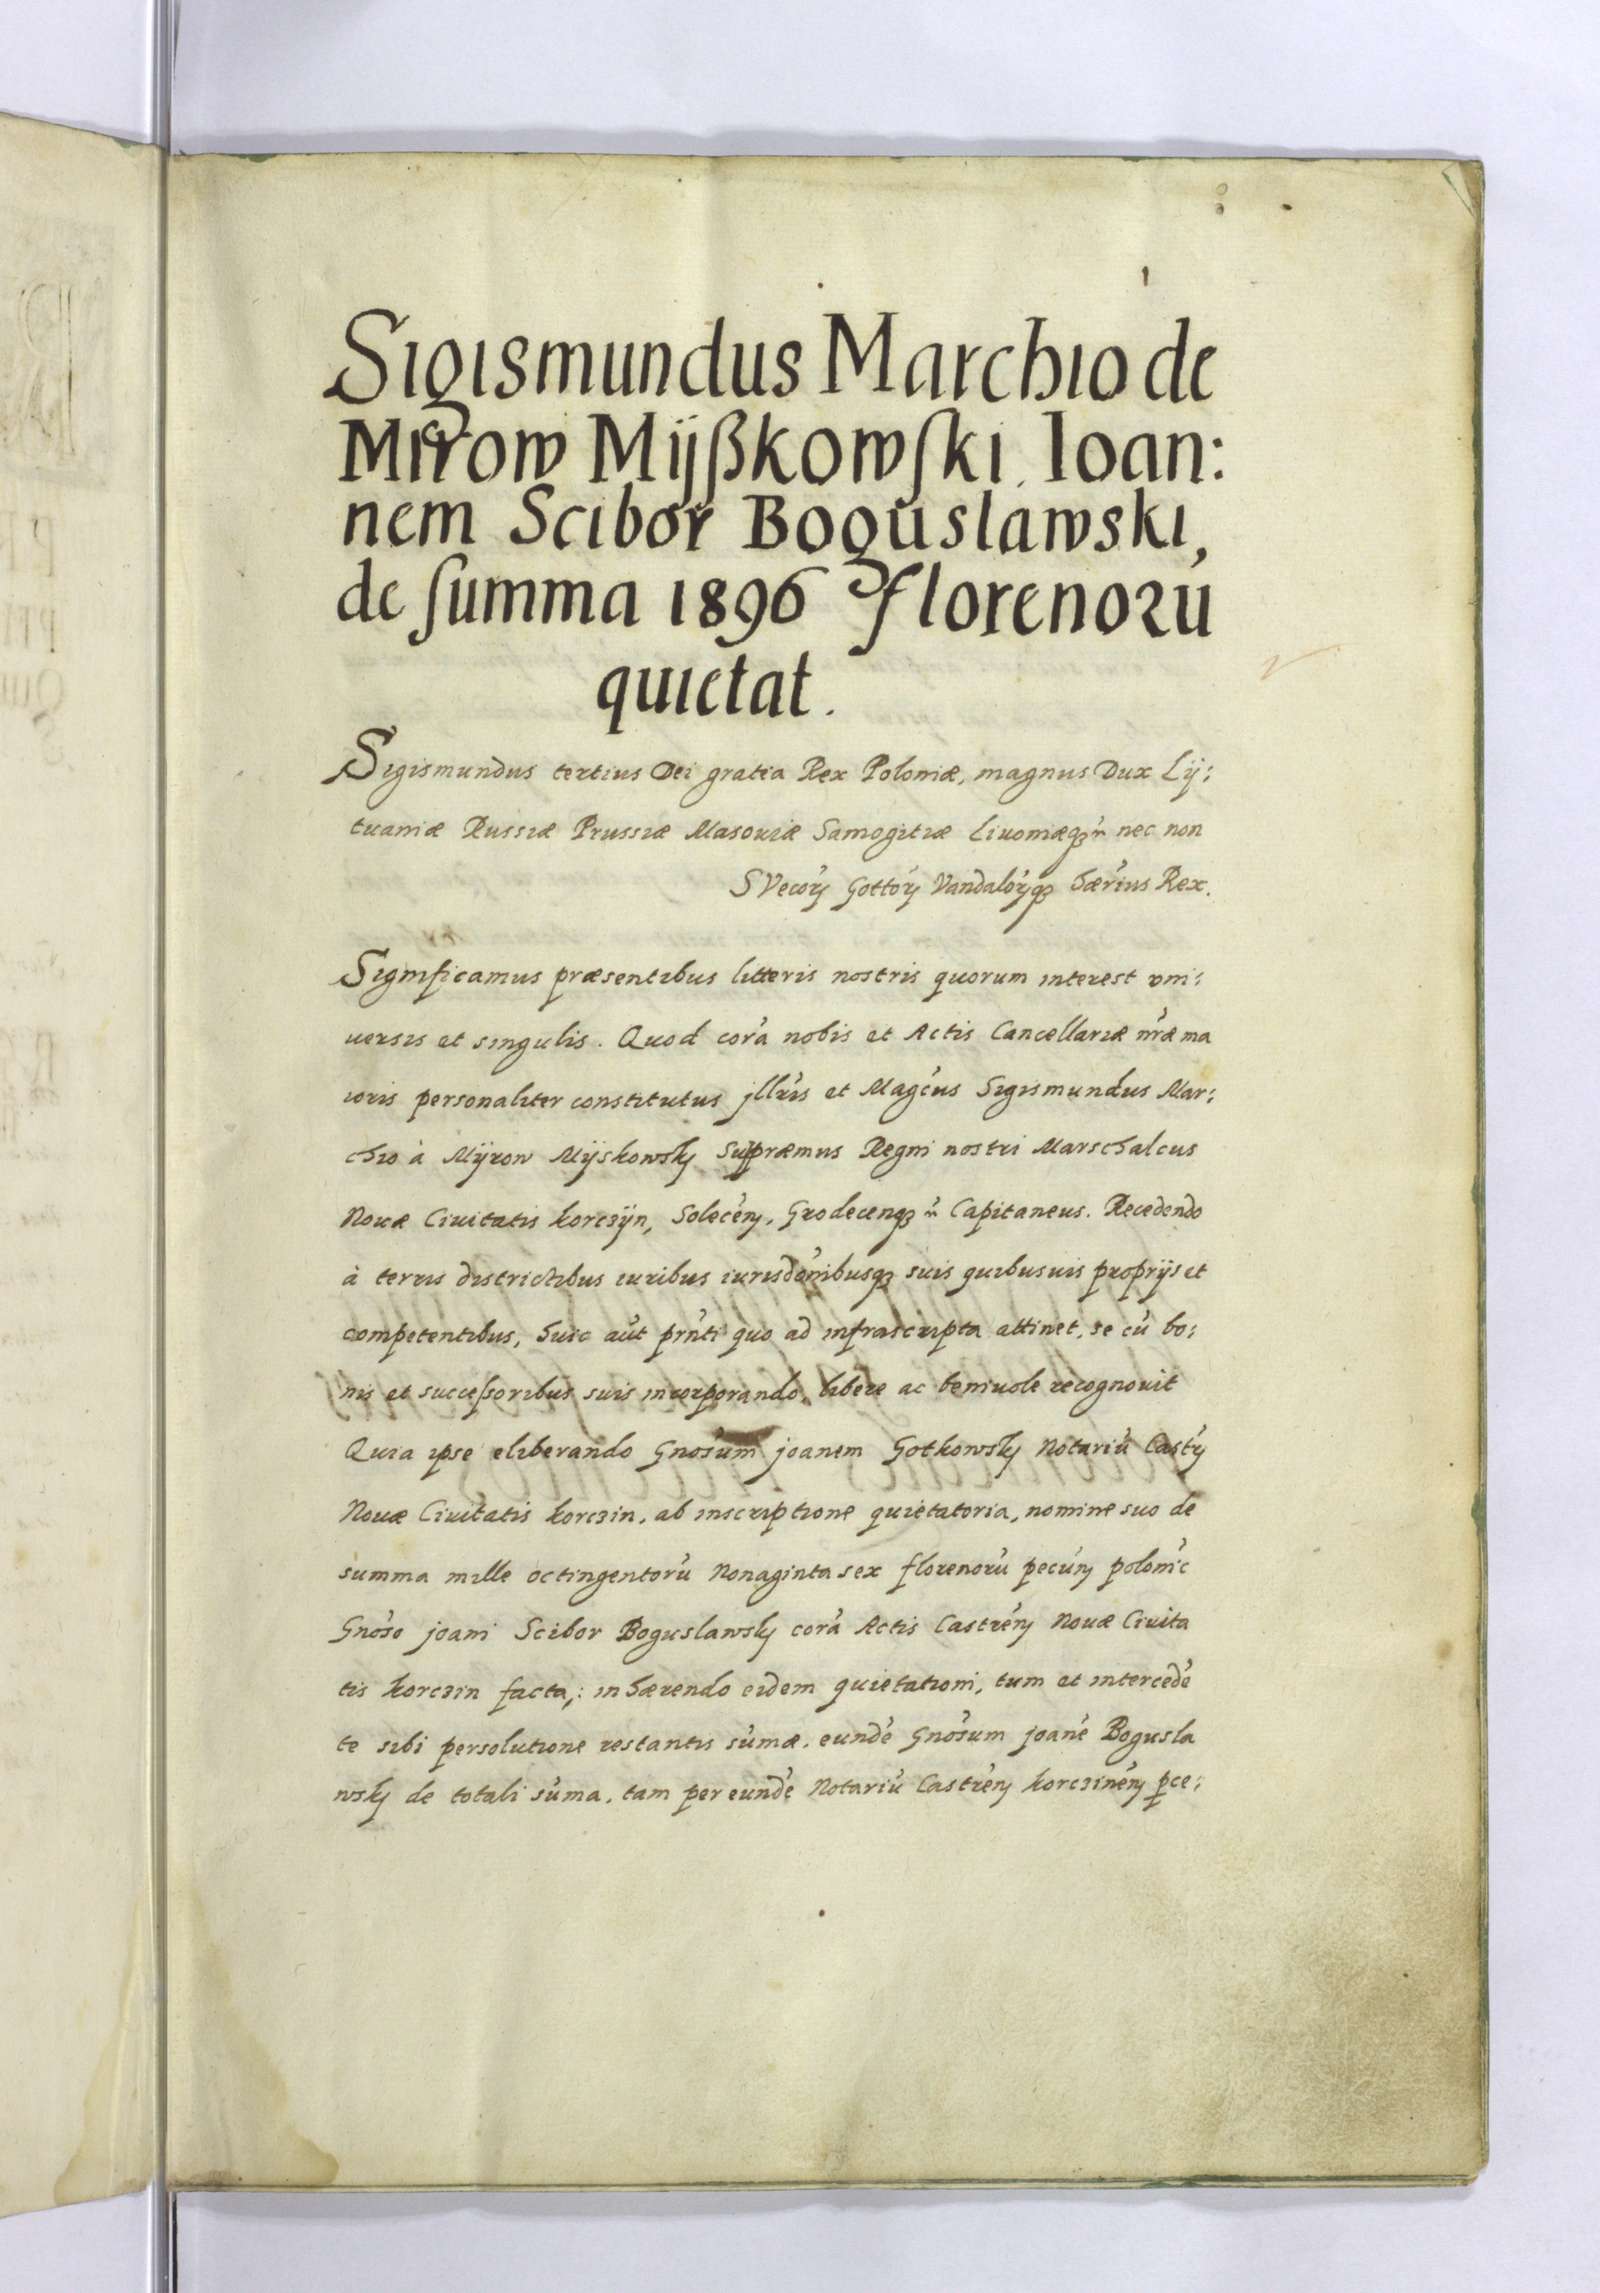 Sigismundus Marchio de
Mirow Mijßkowski, Ioan:
nem Scibor Boguslawski,
de summa 1896 florenorú
quietat.
Sigismundus tertius Dei gratia Rex Poloniæ, magnus Dux Lij:
tuaniæ Russiæ Prussiæ Masoviæ Samogitiæ Livoniæqꝫ nec non
SVecorꝫ Gottorꝫ Vandalorꝫqꝫ hærius Rex.
Significamus præsentibus litteris nostris quorum interest vni:
uersis et singulis. Quod cora nobis et Actis Cancellariæ nræ ma
ioris personaliter constitutus jllris et Magcus Sigismundus Mar:
chio à Mÿrow Mÿskowskj Supræmus Regni nostri Marschalcus
Nouæ Ciuitatis korczÿn, Solecenꝫ, Grodecenqꝫ Capitaneus. Recedendo
à terris districtibus iuribus iurisdonibusqꝫ suis quibusuis proprijs et
competentibus, huic aut prnti quo ad infrascripta attinet, se cú bo:
nis et successoribus suis incorporando, libere ac beniuole recognouit
Quia ipse eliberando Gnosum joanem Gotkowskj Notariú Castrꝫ
Nouæ Ciuitatis korczin, ab inscriptione quietatoria, nomine suo de
summa mille octingentorú Nonaginta sex florenorú pecunꝫ polonic
Gnoso joani Scibor Boguslawskj cora Actis Castrenꝫ Nouæ Ciuita
tis korczin facta,: inhærendo eidem quietationi, tum et intercedé
te sibi persolutione restantis súmæ, eundé Gnosum joané Bogusla
wskj de totali súma, tam per eundé Notariú Castrenꝫ korczinenꝫ pce: